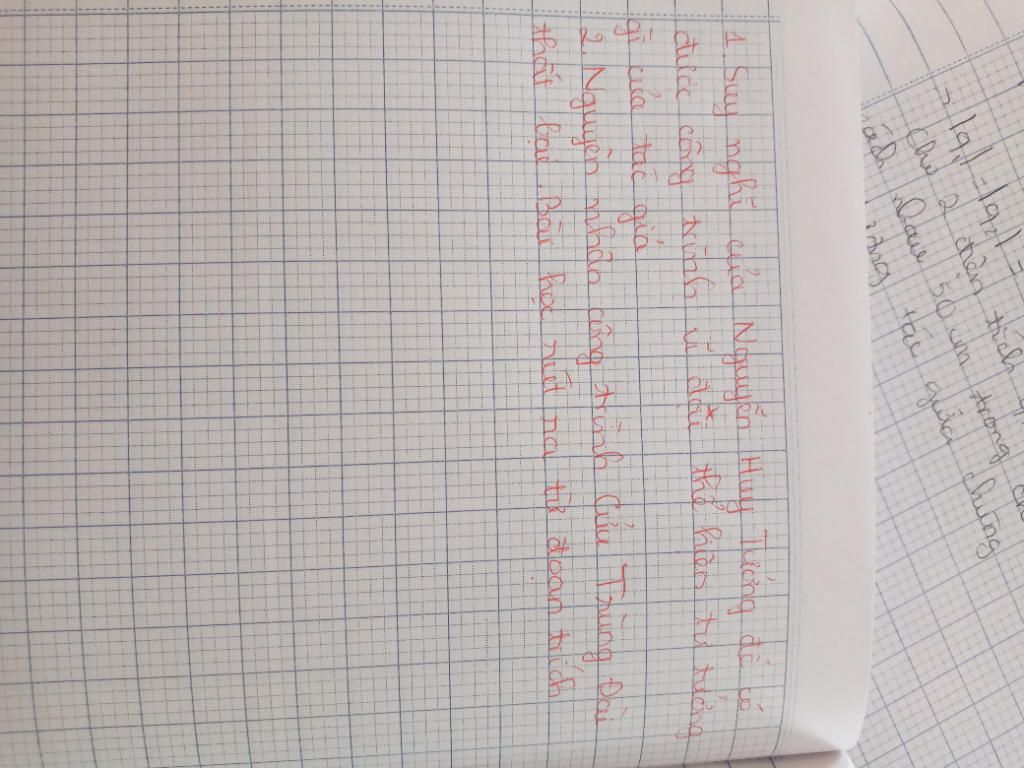 1. Suy nghĩ của Nguyễn Huy Tưởng để có
được công trình vĩ đại thể hiện tư tưởng
gì của tác giả
2 Nguyên nhân công trình Cửu Trùng Đài
thất bại. Bài học rút ra từ đoạn trích
1941 - 1941 -
Chú 2 đàn thích
lau 50 um trong
ứng tác giữa chừng